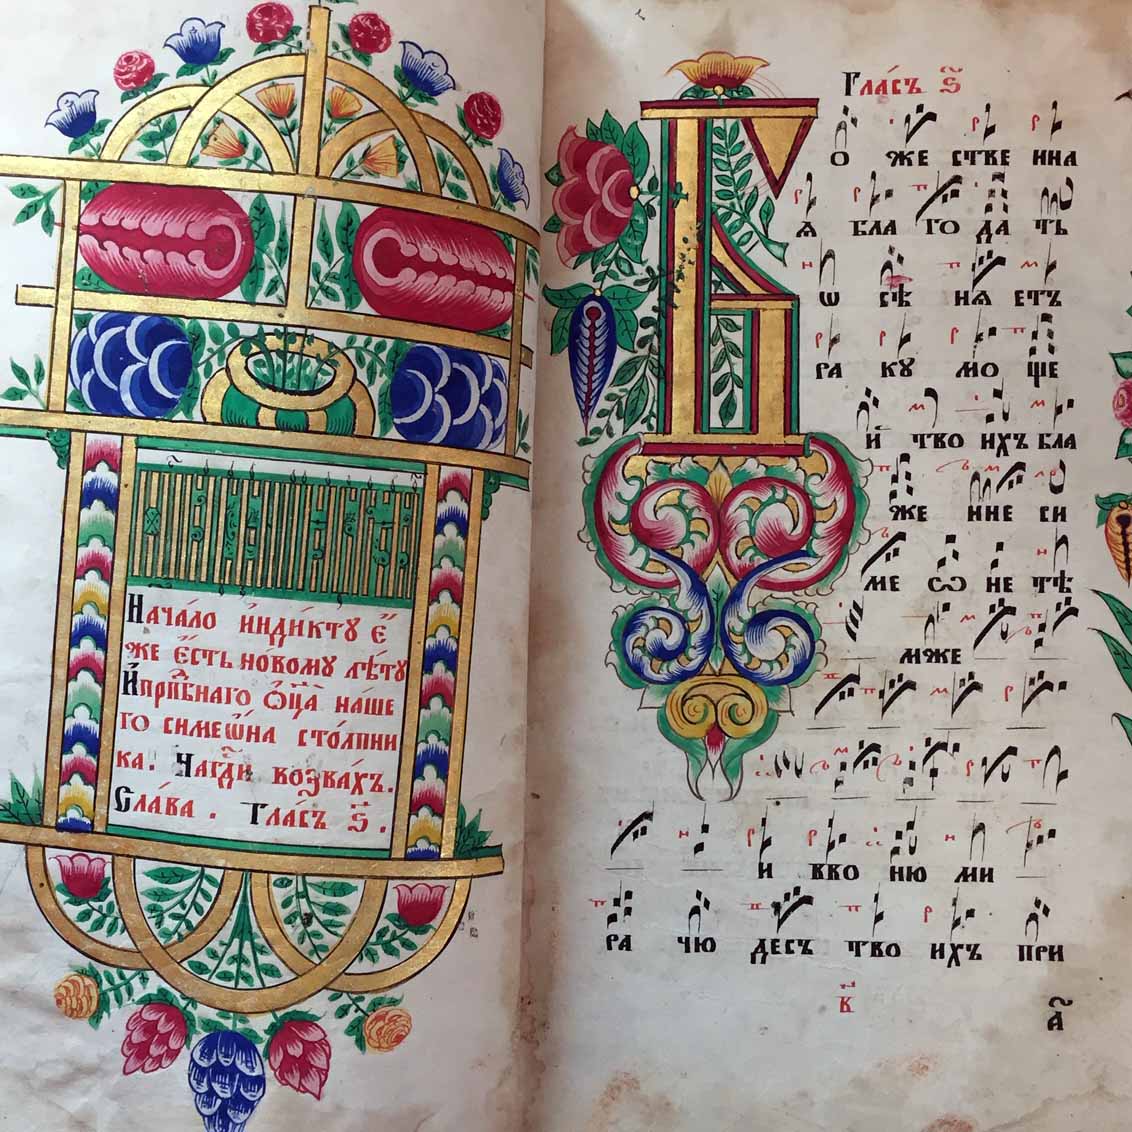 Нача́ло инди́кту є҆́
же є҆́сть но́вому лѣ́ту
И҆ прпⷣбнаго ѻ҆ц҃а̀ на́ше
го симеѡ́на сто́лпни
ка. На гдⷭ҇и возва́хъ.
Сла́ва. Гла́съ ѕ҃.
Гла́съ ѕ҃
Б
о же стве нна
ѧ бла го да ть
ѡ сѣ нѧ етъ
ра ку мо ще
й тво ихъ бла
же нне си
ме ѡ не тѣ
мже
и вко ню ми
ра чю десъ тво ихъ при
в҃
а҃